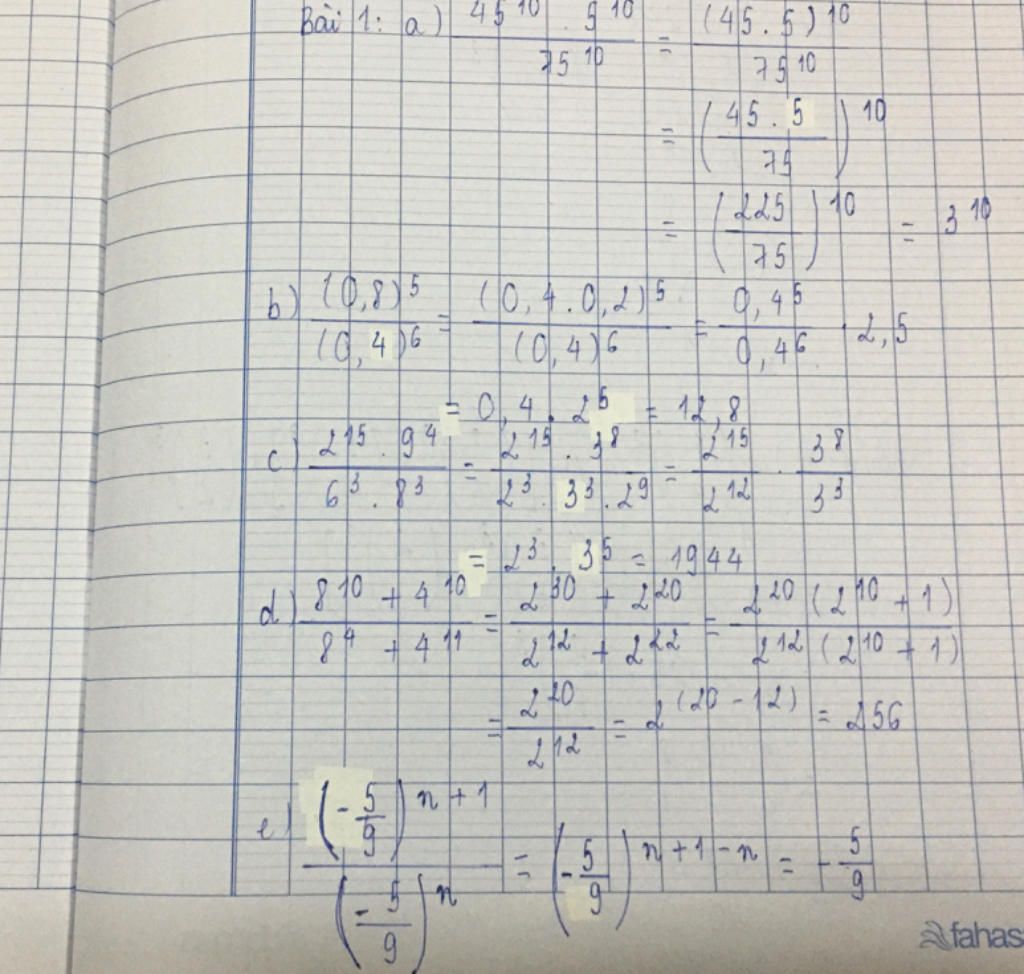 Bài 1: a) \frac{45^{10} . 5^{10}}{75^{10}} = \frac{(45.5)^{10}}{75^{10}}
= \left(\frac{45.5}{75}\right)^{10}
= \left(\frac{225}{75}\right)^{10} = 3^{10}
b) \frac{(0,8)^5}{(0,4)^6} = \frac{(0,4.0,2)^5}{(0,4)^6} = \frac{0,4^5}{0,4^6} . 2,5
= 0,4 . 2^5 = 12,8
c) \frac{2^{15} . 9^4}{6^3 . 8^3} = \frac{2^{15} . 3^8}{2^3 . 3^3 . 2^9} = \frac{2^{15}}{2^{12}} . \frac{3^8}{3^3}
= 2^3 . 3^5 = 1944
d) \frac{8^{10} + 4^{10}}{8^4 + 4^{11}} = \frac{2^{30} + 2^{20}}{2^{12} + 2^{22}} = \frac{2^{20} (2^{10} + 1)}{2^{12} (2^{10} + 1)}
= \frac{2^{20}}{2^{12}} = 2^{(20 - 12)} = 256
e) \frac{\left(-\frac{5}{9}\right)^{n+1}}{\left(\frac{-5}{9}\right)^n} = \left(-\frac{5}{9}\right)^{n+1-n} = -\frac{5}{9}
fahas